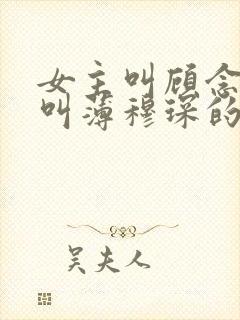 女主叫顾念
叫薄穆琛的
吴夫人